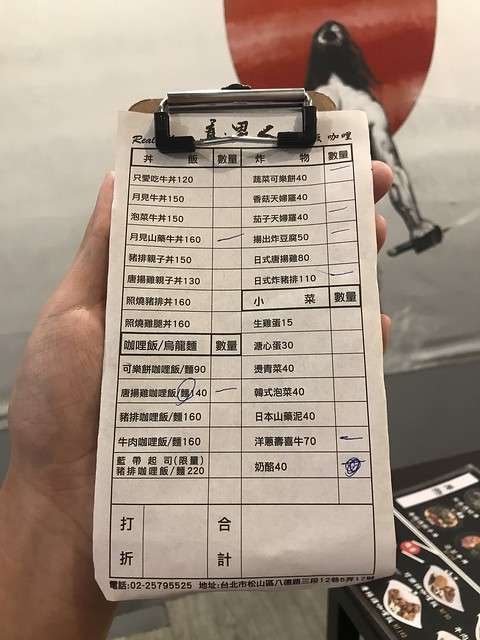 Real
真男人
咖哩
丼 飯 數量 炸 物 數量
只愛吃牛丼120 蔬菜可樂餅40
月見牛丼150 香菇天婦羅40
泡菜牛丼150 茄子天婦羅40
月見山藥牛丼160 揚出炸豆腐50
豬排親子丼150 日式唐揚雞80
唐揚雞親子丼130 日式炸豬排110
照燒豬排丼160 小 菜 數量
照燒雞腿丼160 生雞蛋15
咖哩飯/烏龍麵 數量 溏心蛋30
可樂餅咖哩飯/麵90 燙青菜40
唐揚雞咖哩飯/麵140 韓式泡菜40
豬排咖哩飯/麵160 日本山藥泥40
牛肉咖哩飯/麵160 洋蔥壽喜牛70
藍帶起司(限量)
豬排咖哩飯/麵220 奶酪40
打折 合計
電話:02-25795525 地址:台北市松山區八德路三段12巷5弄12號